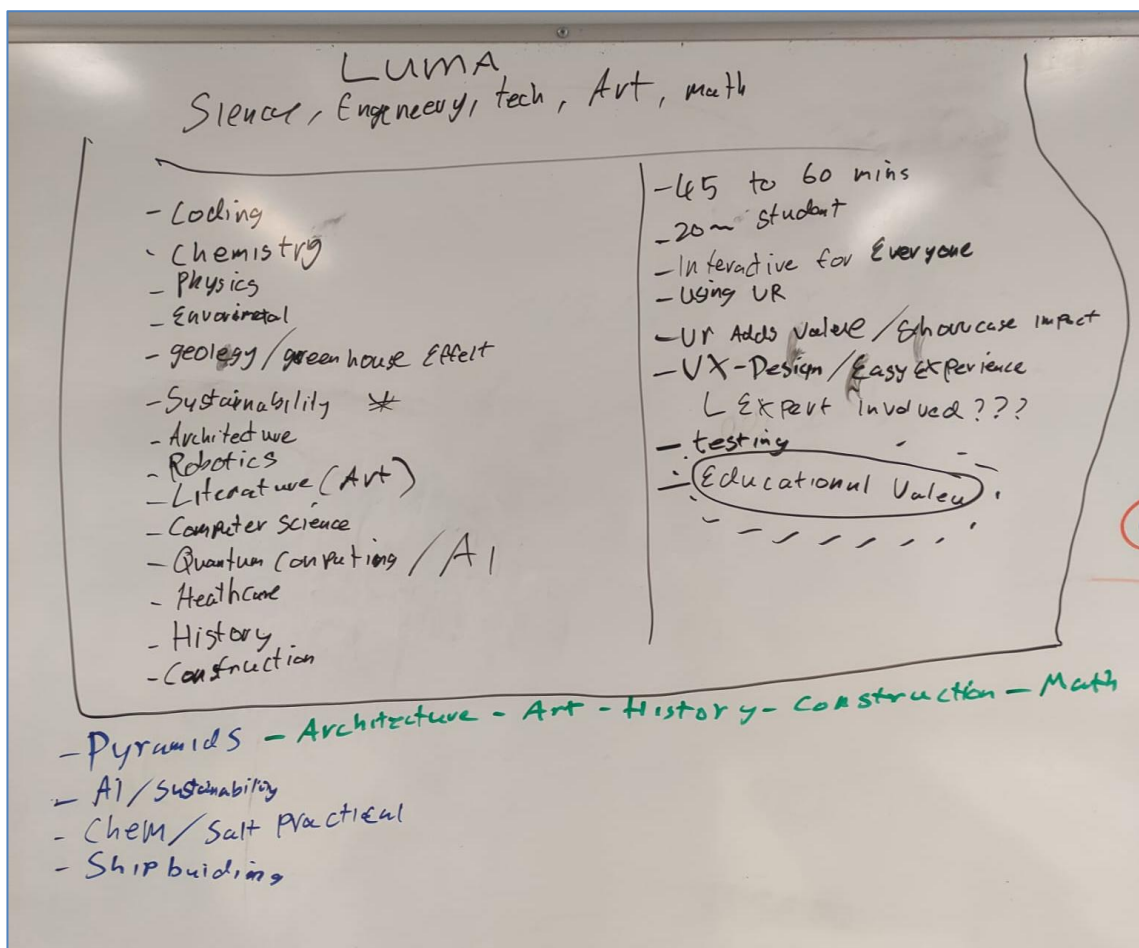 LUMA
Sience, Engneery, tech, Art, math
- Coding
- Chemistry
- Physics
- Envorimetal
- geology/greenhouse Effelt
- Sustainability *
- Architecture
- Robotics
- Literature (Art)
- Computer science
- Quantum Computing / AI
- Heathcare
- History
- Construction
- 45 to 60 mins
- 20~ student
- Interactive for Everyone
- Using VR
- Vr Adds Valeue / Showcase impact
- UX-Design / Easy Experience
L Expert involved???
- testing
- Educational Valeu
- Pyramids - Architecture - Art - History - Construction - Math
- AI/Sustainability
- Chem/Salt Practical
- Shipbuiding